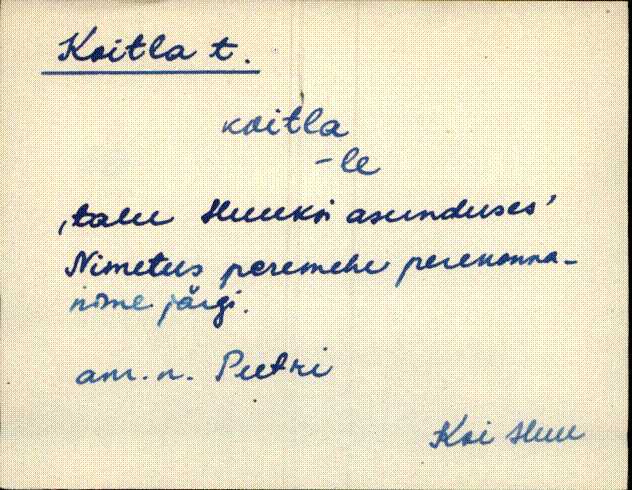 Koitla t.
koitla
-le
‚talu Huuksi asunduses’
Nimetus peremehe perekonna-
nime järgi.
am. n. Peetri
Koi Huu